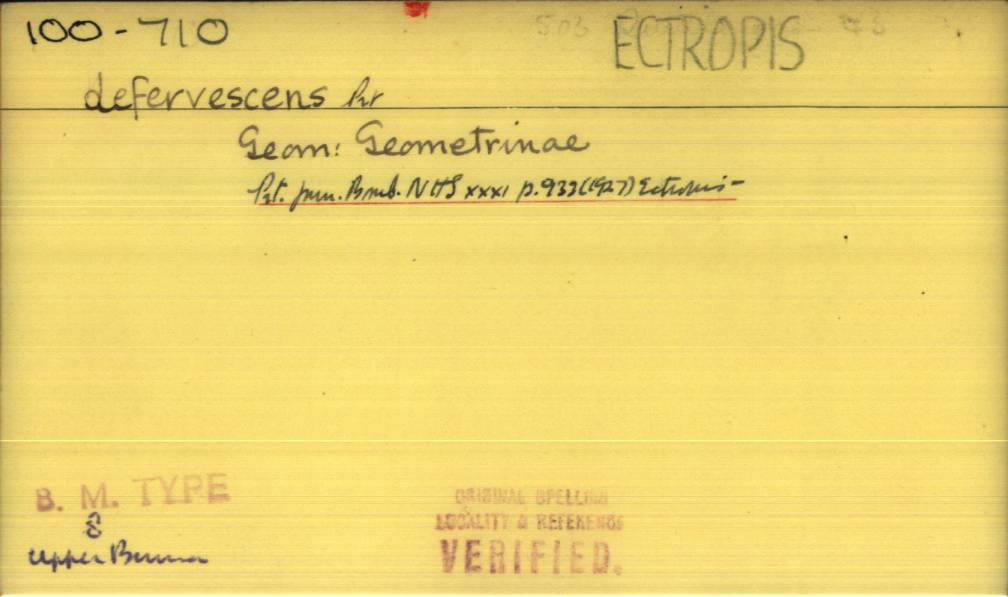 100-710
ECTROPIS
defervescens Prt
Geom: Geometrinae
Prt. Jour. Bomb. NHS xxxi p.933 (1927) Ectropis -
B. M. TYPE
Upper Burma
ORIGINAL SPELLING
LOCALITY & REFERENCE
VERIFIED.